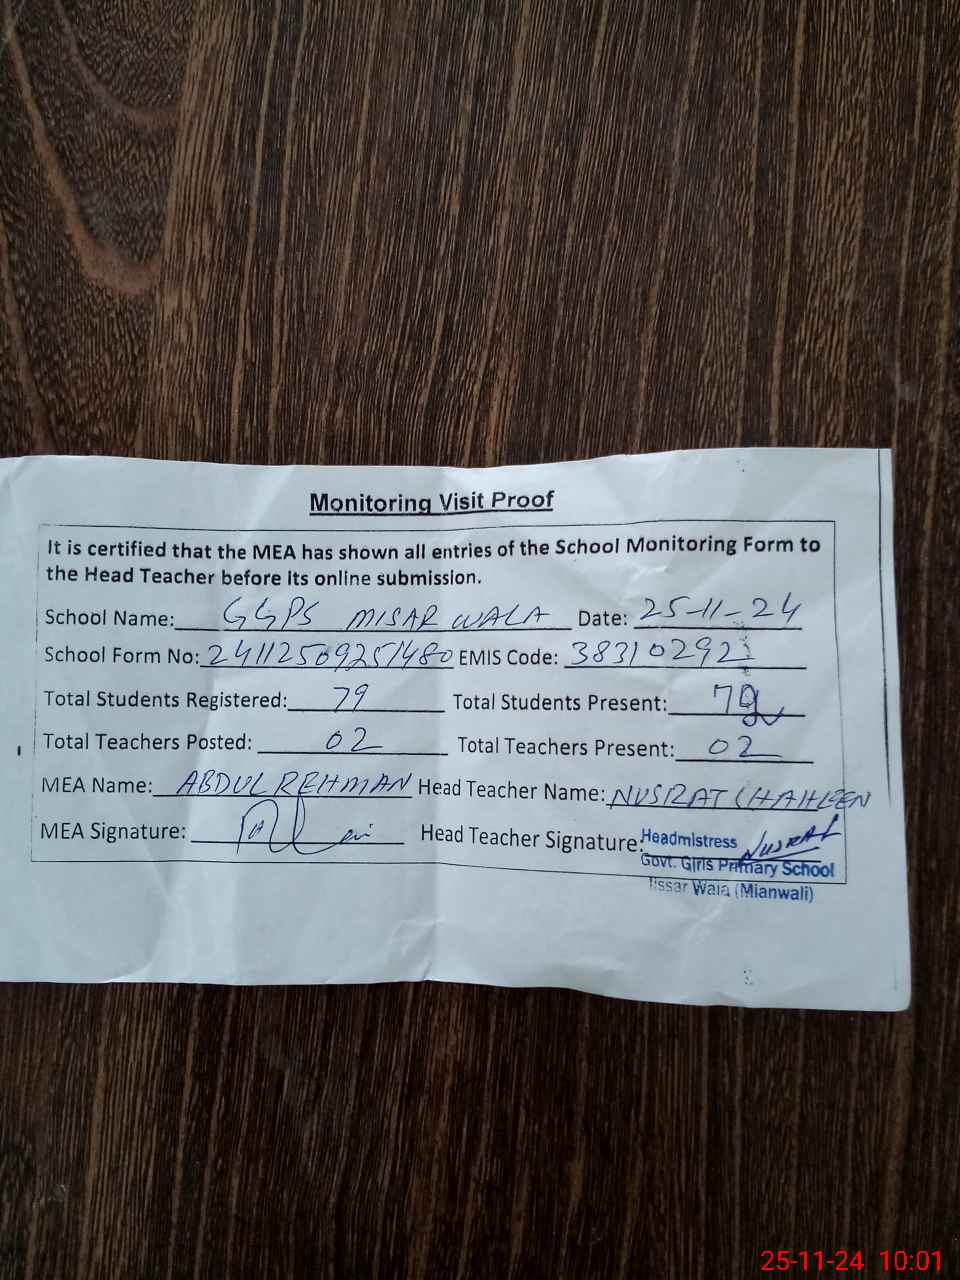 Monitoring Visit Proof
It is certified that the MEA has shown all entries of the School Monitoring Form to
the Head Teacher before its online submission.
School Name: GGPS MISAR WALA Date: 25-11-24
School Form No: 24112509251480 EMIS Code: 38310292
Total Students Registered: 79 Total Students Present:
Total Teachers Posted: 02 Total Teachers Present: 02
MEA Name: ABDUL REHMAN Head Teacher Name: NUSRAT
MEA Signature: Head Teacher Signature: Headmistress Nusrat
Govt. Girls Primary School
Wala (Mianwali)
25-11-24 10:01